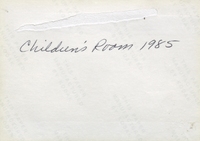 Children's Room 1985